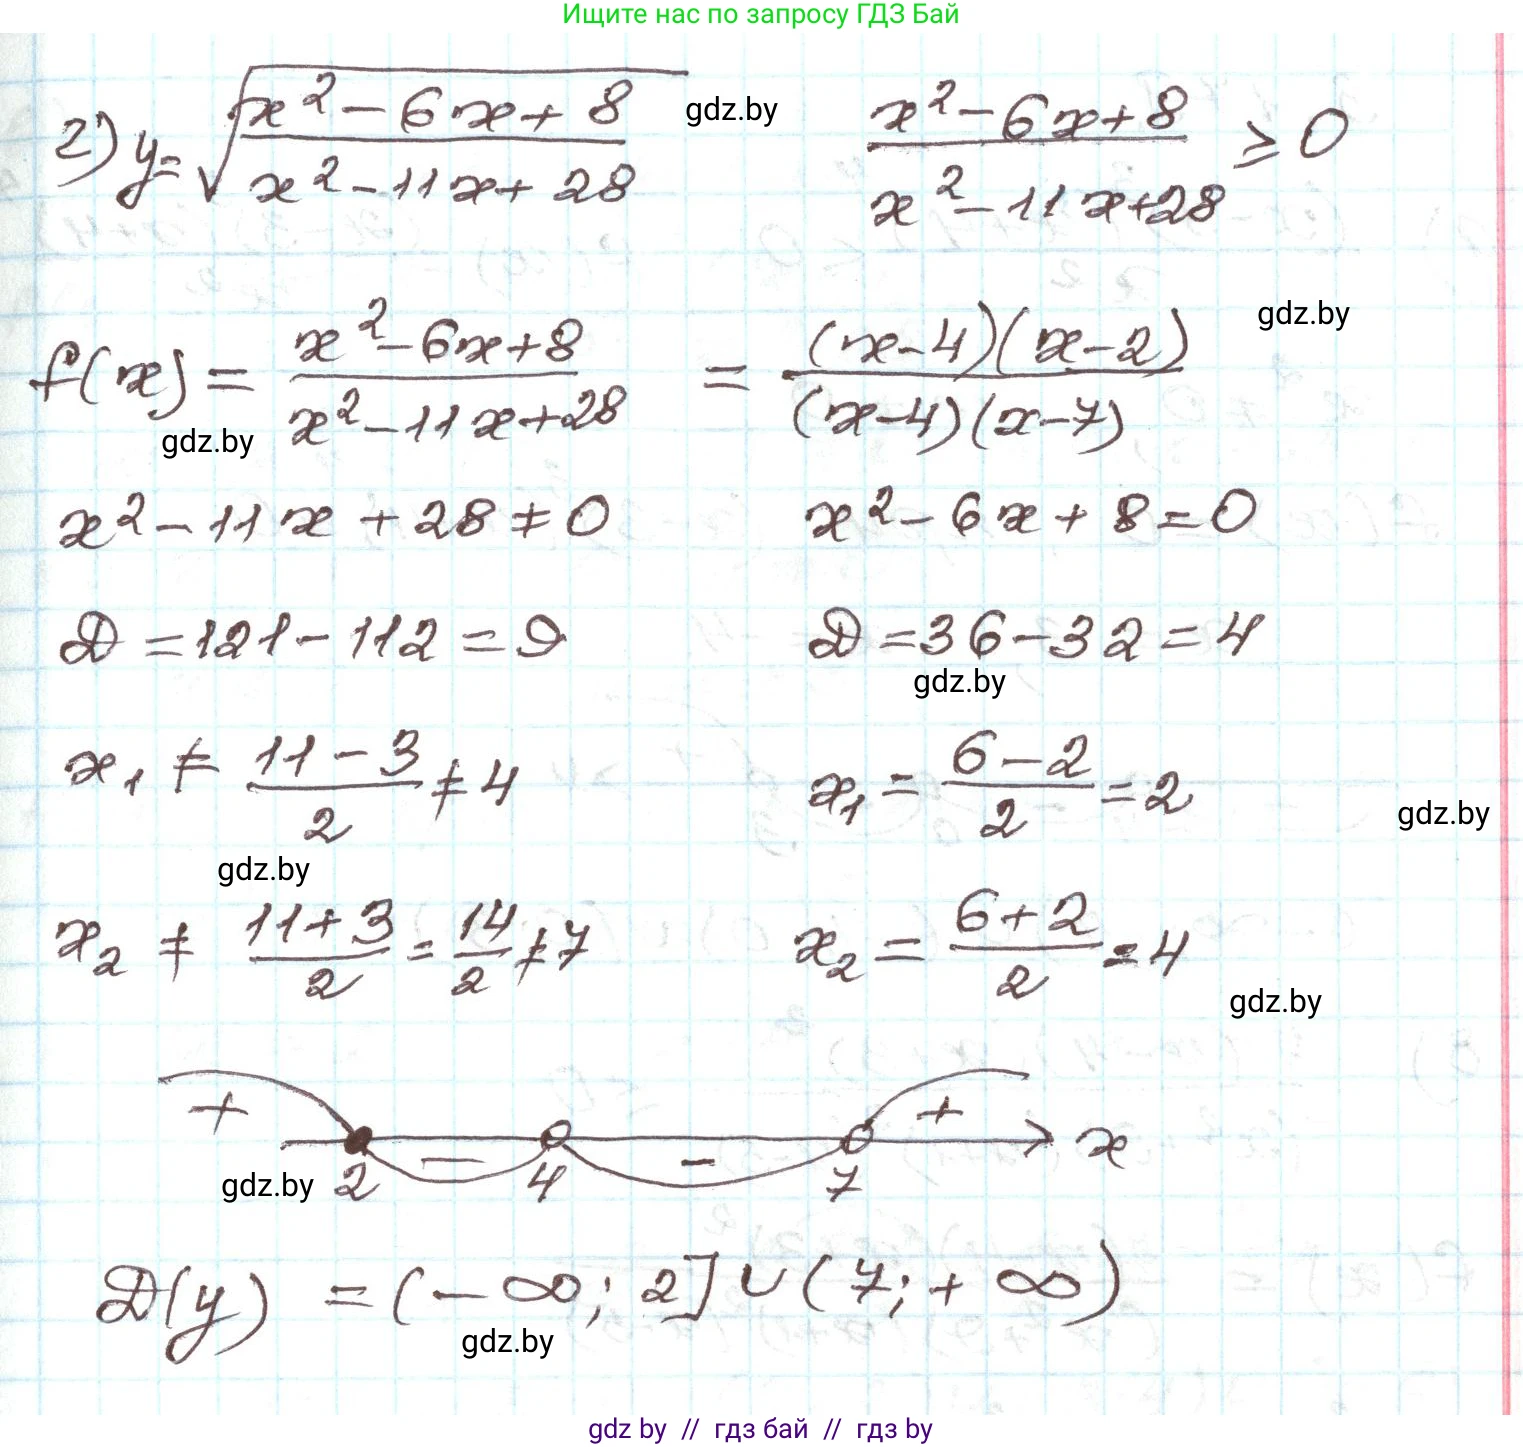 Ищите нас по запросу ГДЗ Бай
2) y = √((x² - 6x + 8)/(x² - 11x + 28)) gdz.by (x² - 6x + 8)/(x² - 11x + 28) ≥ 0
gdz.by
f(x) = (x² - 6x + 8)/(x² - 11x + 28) = ((x - 4)(x - 2))/((x - 4)(x - 7))
gdz.by
x² - 11x + 28 ≠ 0 x² - 6x + 8 = 0
D = 121 - 112 = 9 D = 36 - 32 = 4
gdz.by
x₁ ≠ (11 - 3)/2 ≠ 4 x₁ = (6 - 2)/2 = 2
gdz.by
gdz.by
x₂ ≠ (11 + 3)/2 = 14/2 ≠ 7 x₂ = (6 + 2)/2 = 4
gdz.by
+ - - + x
gdz.by 2 4 7
D(y) = (-∞; 2] ∪ (7; +∞)
gdz.by
gdz by // гдз бай // гдз by